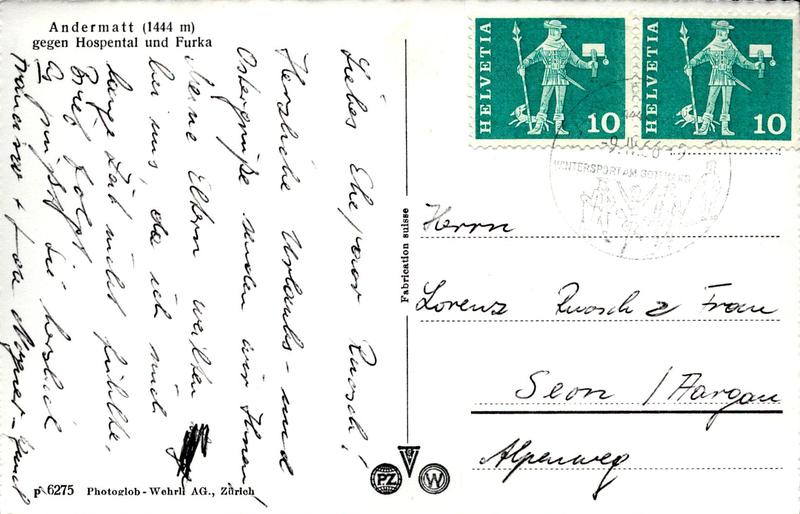 Andermatt (1444 m)
gegen Hospental und Furka
Liebes Ehepaar Ruosch!
Herzliche Urlaubs- und
Ostergrüße senden wir Ihnen,
Meine Eltern weilten
bei uns, da ich mich
lange Zeit nicht fühlte,
Brief folgt
Es grüßt Sie herzlich
HELVETIA
10
HELVETIA
10
WINTERSPORT AM GOTTHARD
Fabrication suisse
Herrn
Lorenz Ruosch & Frau
Seon / Aargau
Alpenweg
PZ
W
p 6275 Photoglob-Wehrli AG., Zürich